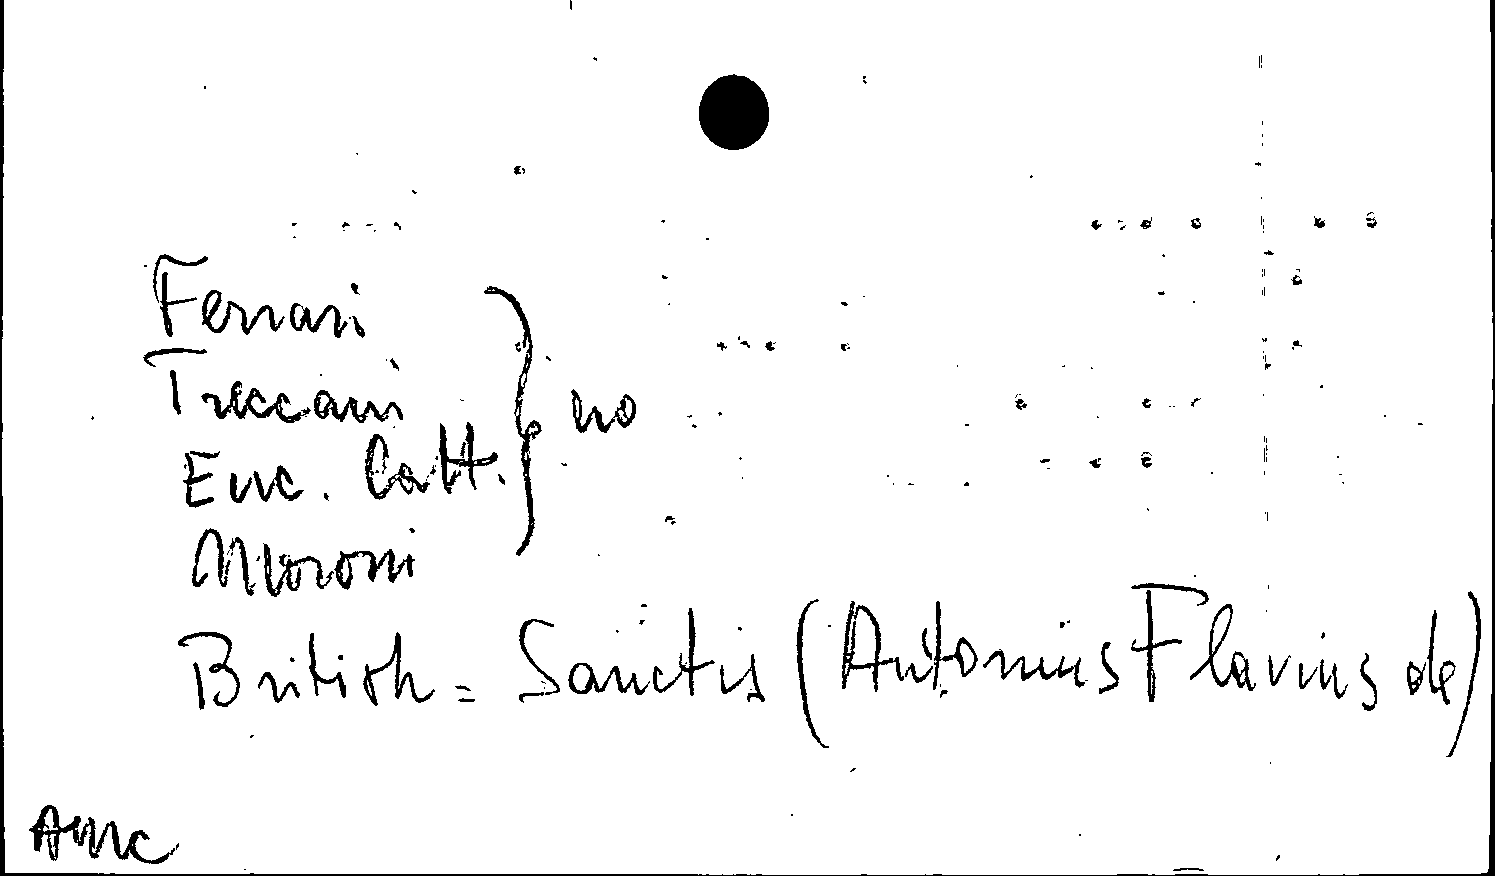 Ferrari
Treccani } no
Enc. Catt.
Moroni
British = Sanctis (Antonius Flavius de)